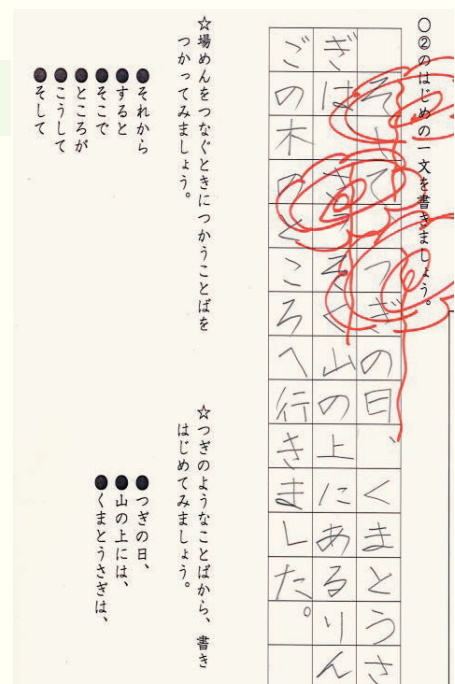 ○②のはじめの一文を書きましょう。
そして、つぎの日、くまとうさ
ぎは、さっそく山の上にあるりん
ごの木のところへ行きました。
☆場めんをつなぐときにつかうことばを
つかってみましょう。
●それから
●すると
●そこで
●ところが
●こうして
●そして
☆つぎのようなことばから、書き
はじめてみましょう。
●つぎの日、
●山の上には、
●くまとうさぎは、